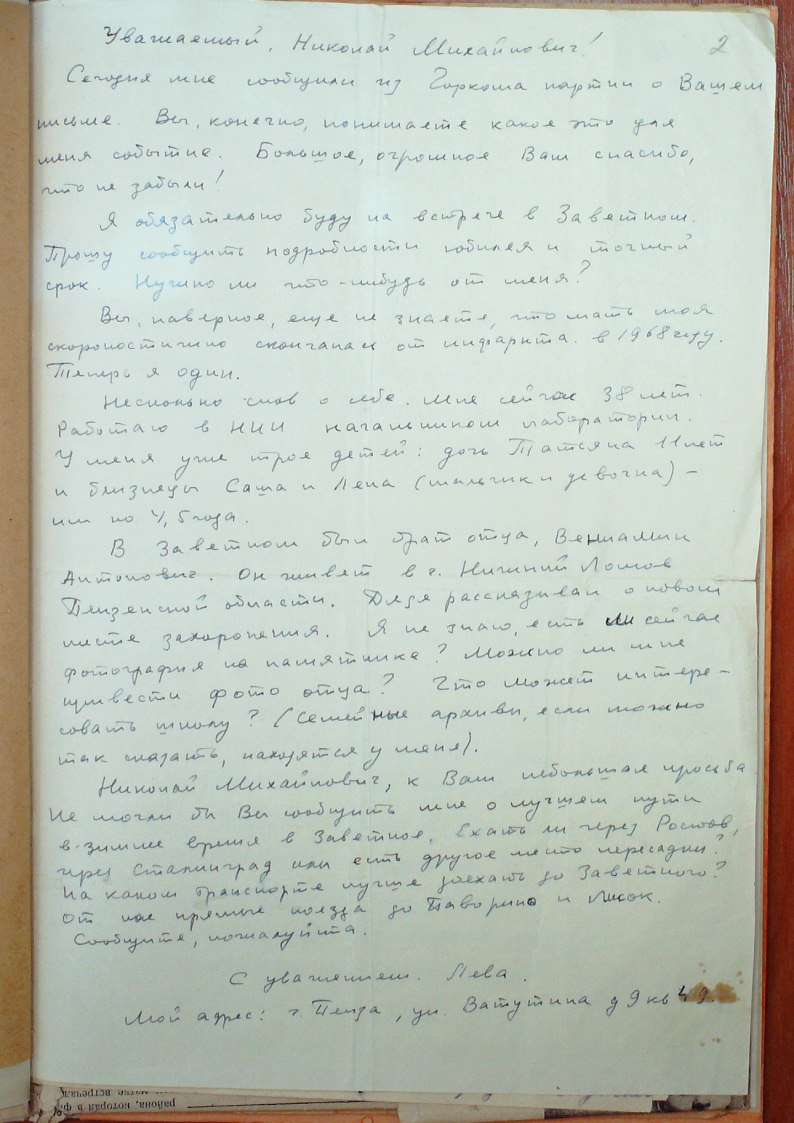 2
Уважаемый, Николай Михайлович!
Сегодня мне сообщили из Горкома партии о Вашем
письме. Вы, конечно, понимаете какое это для
меня событие. Большое, огромное Вам спасибо,
что не забыли!
Я обязательно буду на встрече в Заветном.
Прошу сообщить подробности юбилея и точный
срок. Нужно ли что-нибудь от меня?
Вы, наверное, еще не знаете, что мать моя
скоропостижно скончалась от инфаркта. в 1968 году.
Теперь я один.
Несколько слов о себе. Мне сейчас 38 лет.
Работаю в НИИ начальником лаборатории.
У меня уже трое детей: дочь Татьяна 11 лет
и близнецы Саша и Лена (мальчик и девочка) –
им по 4,5 года.
В Заветном был брат отца, Вениамин
Антонович. Он живет в г. Нижний Ломов
Пензенской области. Дядя рассказывал о новом
месте захоронения. Я не знаю, есть ли сейчас
фотография на памятнике? Можно ли мне
привести фото отца? Что может интере-
совать школу? (Семейные архивы, если можно
так сказать, находятся у меня).
Николай Михайлович, к Вам небольшая просьба
Не могли бы Вы сообщить мне о лучшем пути
в зимнее время в Заветное. Ехать ли через Ростов,
через Сталинград или есть другое место пересадки?
На каком транспорте лучше доехать до Заветного?
От нас прямые поезда до и
Сообщите, пожалуйста.
С уважением. Лева.
Мой адрес: г. Пенза, ул. Ватутина д 9 кв 49.
района, которая в ф
встречал